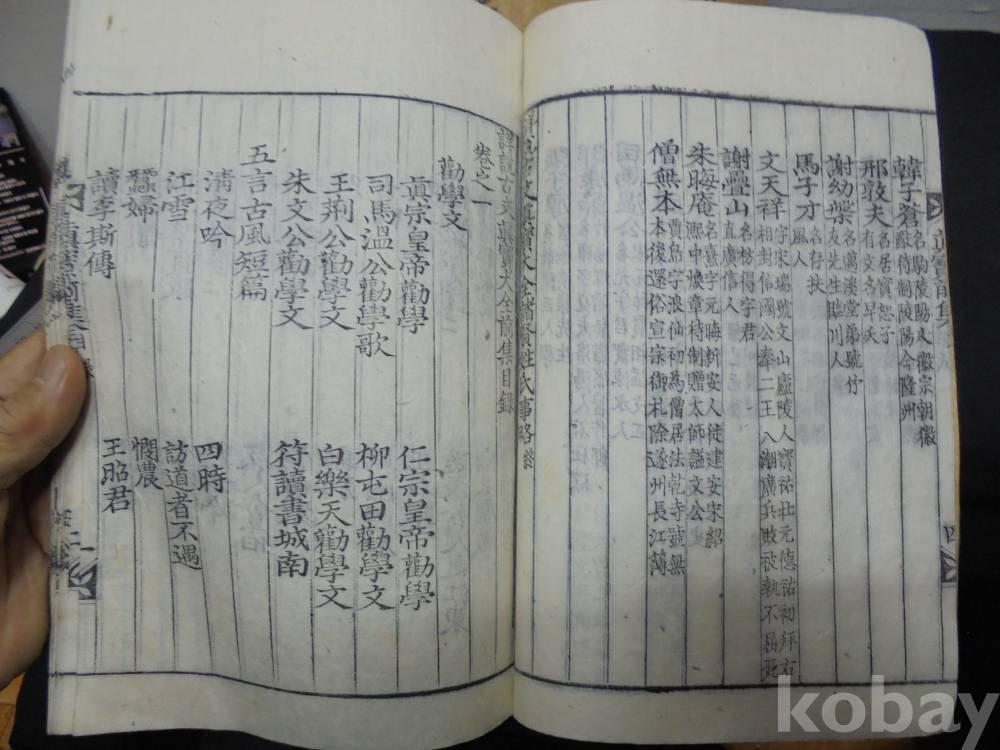 韓子蒼 名駒陵陽人徽宗朝徽
猷待制陵陽今隆州
邢敦夫 名居實恕子
有文名早夭
謝幼槃 名薖溪堂弟號竹
友先生臨川人
馬子才 名存扶
風人
文天祥 字宋瑞號文山廬陵人寶祐壯元德祐初拜右
相封信國公奉二王入潮廣兵敗被執不屈死
謝疊山 名枋得字君
直廣信人
朱晦庵 名熹字元晦新安人徒建安宋紹
熙中煥章待制贈太師謚文公
僧無本 賈島字浪仙初為僧居法乾寺號無
本後還俗宣宗御札除遂州長江薄
詳說古文眞寶大全諸賢姓氏事略終
詳說古文眞寶大全前集目錄
卷之一
勸學文
眞宗皇帝勸學 仁宗皇帝勸學
司馬溫公勸學歌 柳屯田勸學文
王荆公勸學文 白樂天勸學文
朱文公勸學文 符讀書城南
五言古風短篇
淸夜吟 四時
江雪 訪道者不遇
蠶婦 憫農
讀李斯傳 王昭君
kobay